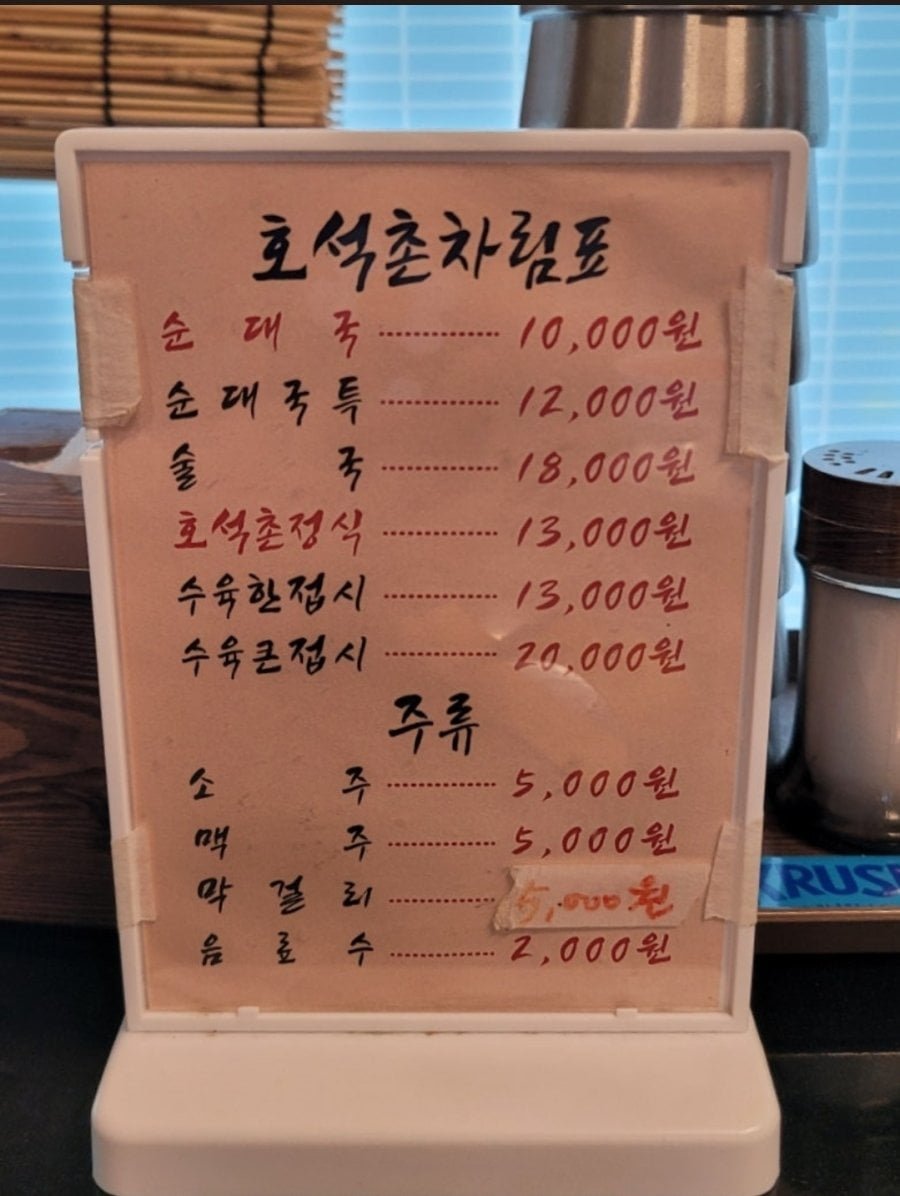 호석촌차림표
순대국 10,000원
순대국특 12,000원
술국 18,000원
호석촌정식 13,000원
수육한접시 13,000원
수육큰접시 20,000원
주류
소주 5,000원
맥주 5,000원
막걸리 5,000원
음료수 2,000원